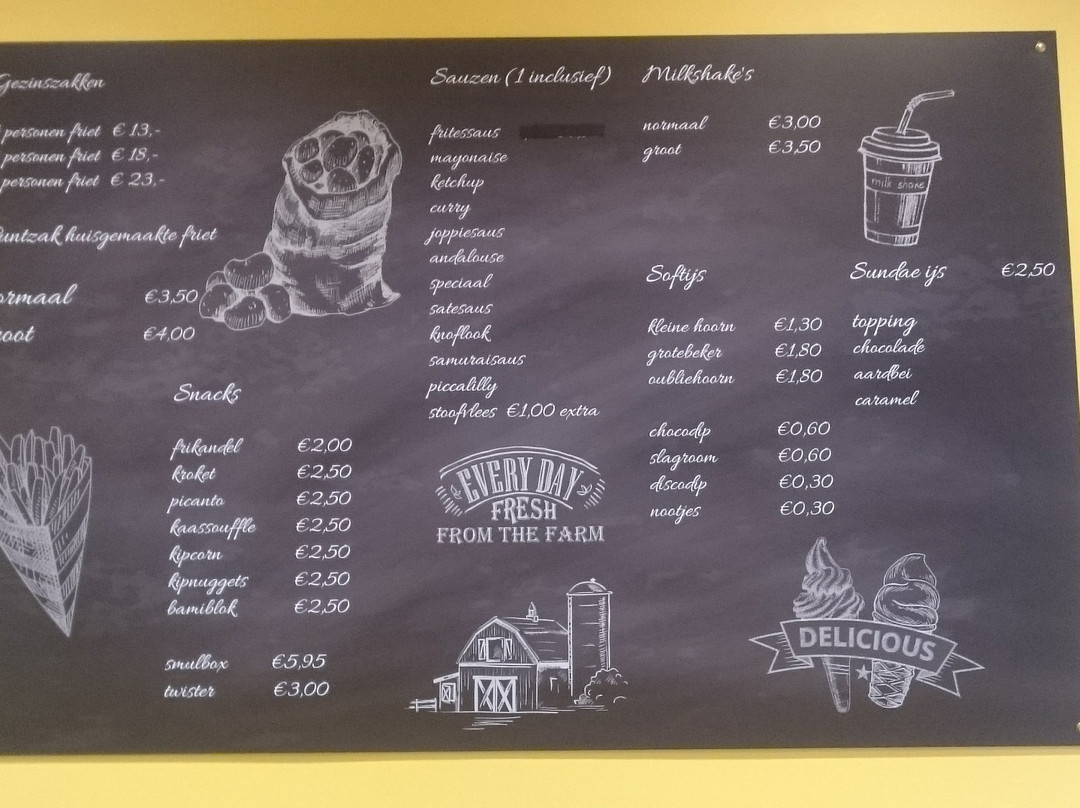 Gezinszakken
personen friet € 13,-
personen friet € 18,-
personen friet € 23,-
huisgemaakte friet
€3,50
€4,00
Snacks
frikandel €2,00
kroket €2,50
picanto €2,50
kaassouffle €2,50
kipcorn €2,50
kipnuggets €2,50
bamiblok €2,50
smulbox €5,95
twister €3,00
Sauzen (1 inclusief)
fritessaus
mayonaise
ketchup
curry
joppiesaus
andalouse
speciaal
satesaus
knoflook
samuraisaus
piccalilly
stoofvlees €1,00 extra
EVERY DAY
FRESH
FROM THE FARM
Milkshake's
normaal €3,00
groot €3,50
milk shake
Softijs
kleine hoorn €1,30
grotebeker €1,80
oubliehoorn €1,80
chocodip €0,60
slagroom €0,60
discodip €0,30
nootjes €0,30
Sundae ijs €2,50
topping
chocolade
aardbei
caramel
DELICIOUS